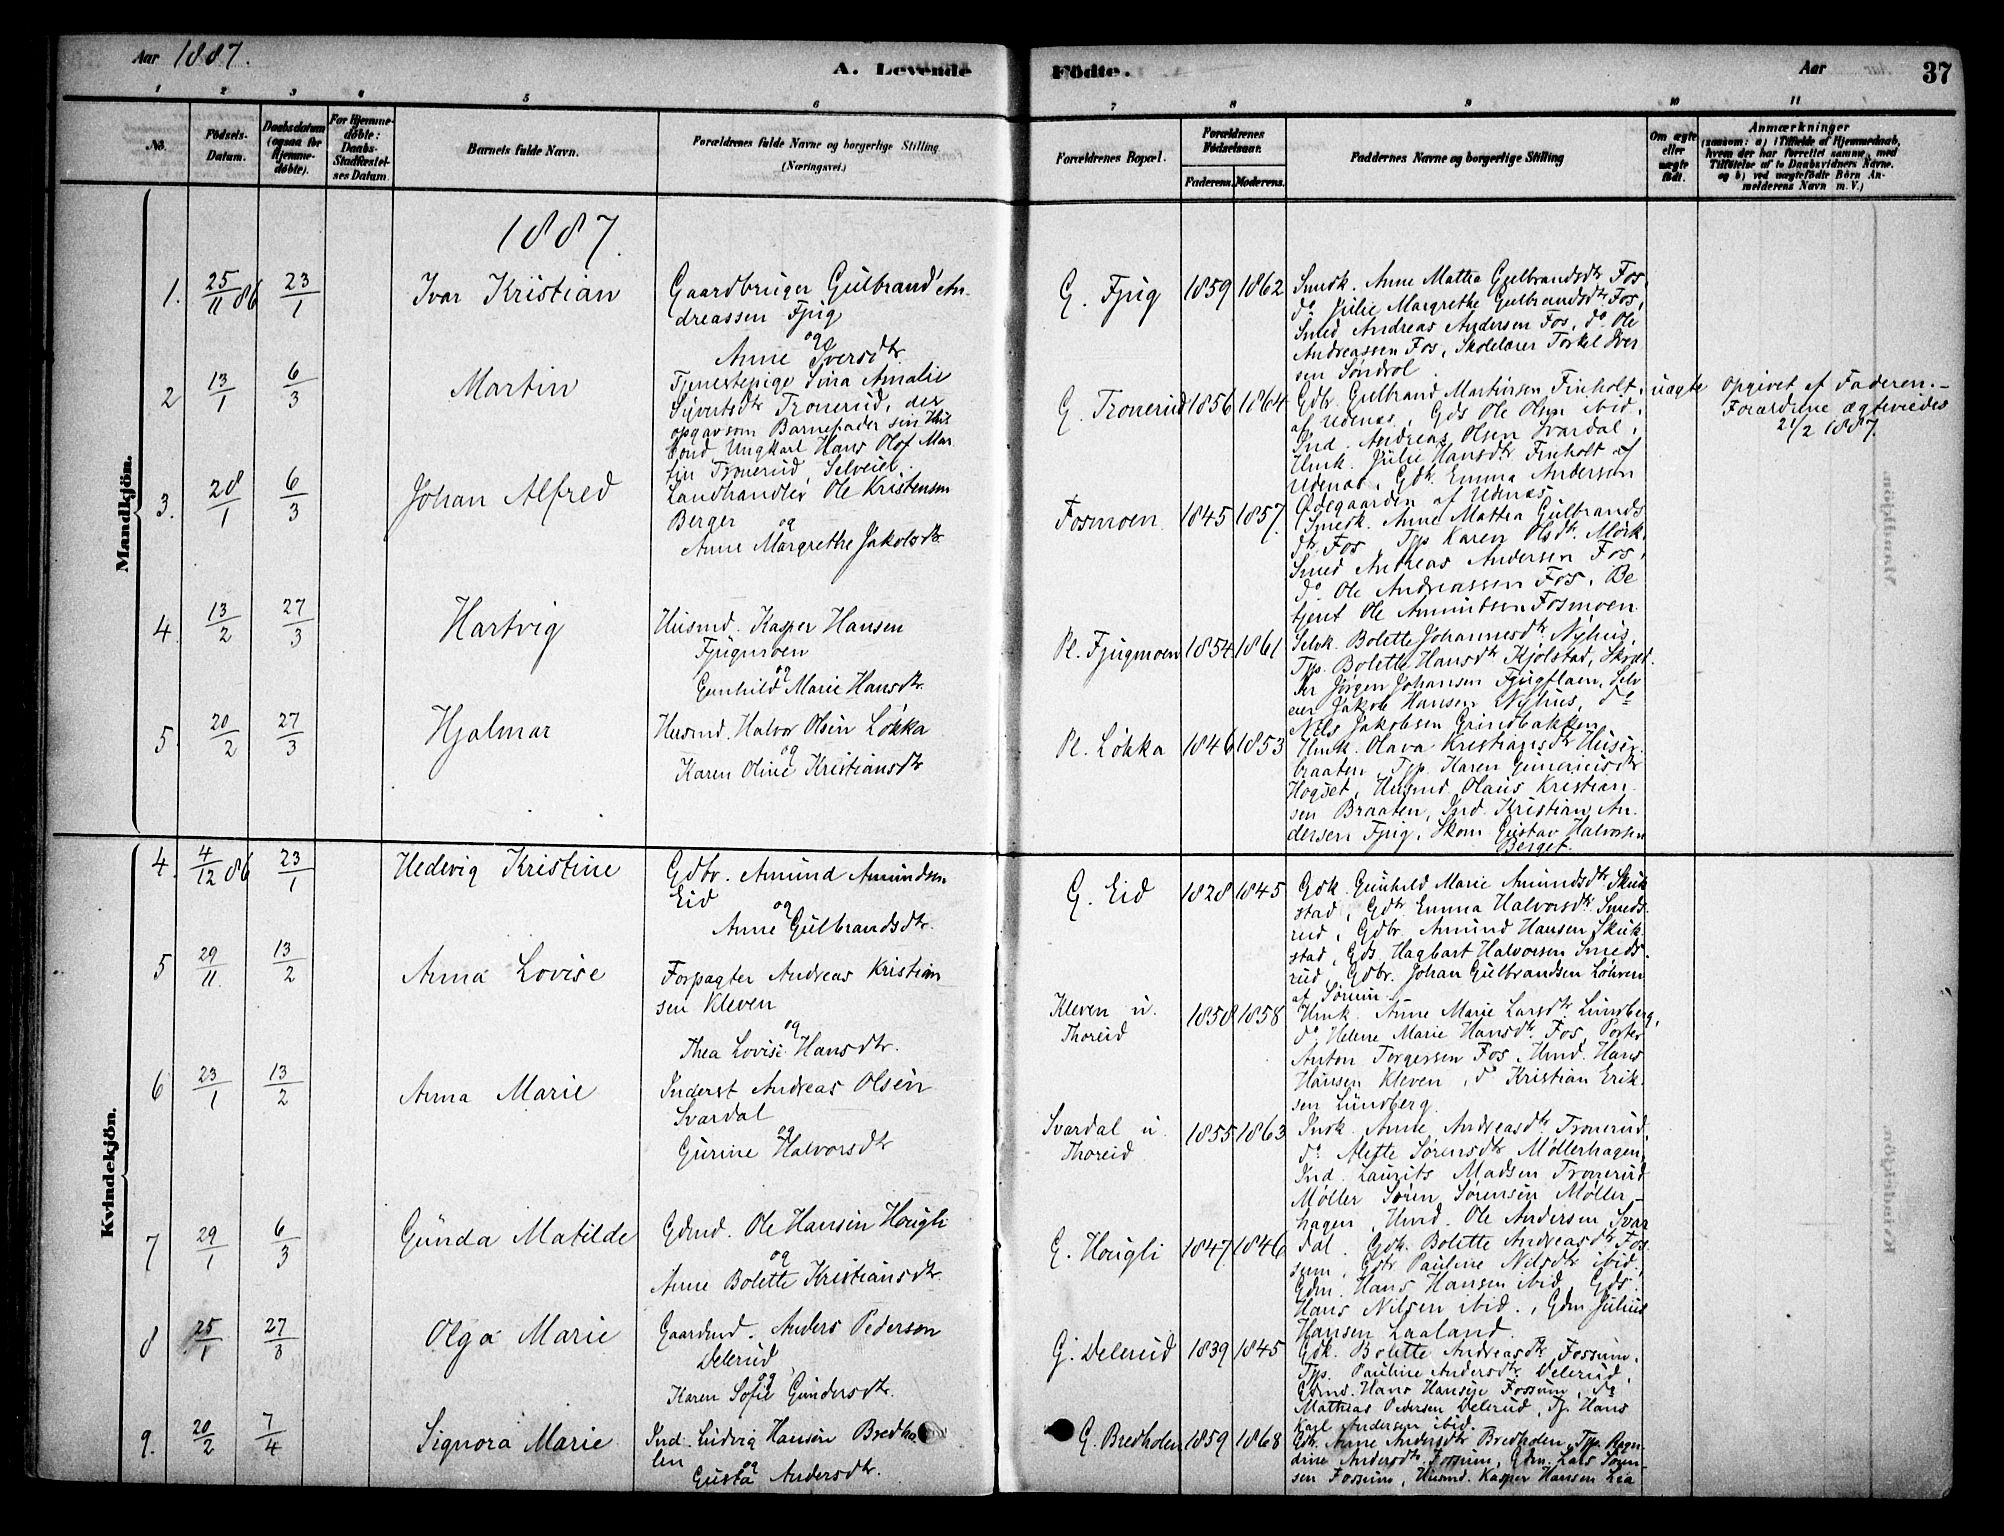 Aar 1887.
A. Levende
Födte.
Aar
37
1
2
3
4
5
6
7
8
9
10
11
No.
Födsels-
Datum.
Daabsdatum
(ogsaa for
Hjemme-
döbte).
For Hjemme-
döbte:
Daabs-
Stadfæstel-
ses Datum.
Barnets fulde Navn.
Forældrenes fulde Navne og borgerlige Stilling.
(Næringsvei.)
Forældrenes Bopæl.
Forældrenes
Födselsaar.
Faderens.
Moderens.
Faddernes Navne og borgerlige Stilling
Om ægte
eller
uægte
født.
Anmærkninger
(saasom: a) i Tilfælde af Hjemmedaab,
hvem der har forrettet samme, med
Tilföielse af to Daabsvidners Navne.
og b) ved uægtefödte Börn An-
melderens Navn m. V.)
Mandkjön.
1887.
1. 25/11 86 23/1 Ivar Kristian
Gaardbruger Gulbrand An-
dreassen Fjug
og
Anne Iversdtr
G. Fjug 1859 1862
Smedk. Anne Mattea Gulbrandsdtr Fos,
do Julie Margrethe Gulbrandsdtr Fos,
Smed Andreas Andersen Fos, do Ole
Andreassen Fos, Skolelærer Torkel Iver
sen Søndrol
2 13/1 6/3 Martin
Tjenestepige Lina Amalie
Syvertsdtr Tronerud, der
opgav som Barnefader sin Hus
bond Ungkarl Hans Olof Mar
tin Tronerud, Selveier.
G. Tronerud 1856 1864
Gdbr. Gulbrand Martinsen Finholt
af Udenæs, Gds Ole Olsen ibid,
Ind. Andreas Olsen Svardal,
Hmk. Julie Hansdtr Finholt af
Udenæs, Gdk. Emma Andersen
Ødegaarden af Udenæs
uægte
Opgivet af Faderen. -
Forældrene ægteviedes
21/2 1887.
3. 28/1 6/3 Johan Alfred
Landhandler Ole Kristensen
Berger og
Anne Margrethe Jakobsdtr.
Fosmoen 1845 1857.
Smedk. Anne Mattea Gulbrands
dtr Fos Tp. Karen Olsdtr Mørk,
Smed Andreas Andersen Fos,
do Ole Andreassen Fos, Be
tjent Ole Amundsen Fosmoen
4. 13/2 27/3 Hartvig
Husmd. Kasper Hansen
Fjugmoen
og
Gunhild Marie Hansdtr.
Pl. Fjugmoen 1854 1861
Selvk. Bolette Johannesdtr Nyhus,
Tp. Bolette Hansdtr Kjølstad, Skræd
der Jørgen Johansen Fjugflaen, Selv
eier Jakob Hansen Nyhus, do
Nils Jakobsen Grindbakken
5. 20/2 27/3 Hjalmar
Husmd. Halvor Olsen Løkka
og
Karen Oline Kristiansdtr
Pl. Løkka 1846 1853
Hmk. Olava Kristiansdtr Huse
braaten, Tp. Karen Guneriusdtr
Hogset, Husmd Olaus Kristian
sen Braaten, Ind. Kristian An
dersen Fjug, Skom Gustav Halvorsen
Berget.
Kvindekjön.
4. 4/12 86 23/1 Hedevig Kristine
Gdbr. Amund Amundsen
Eid
og
Anne Gulbrandsdtr.
G. Eid 1828 1845
Gdk. Gunhild Marie Amundsdtr Skuk
stad, Gdtr. Emma Halvorsdtr Smeds
rud, Gdbr. Amund Hansen Skuk
stad, Gds Hagbart Halvorsen Smeds
rud, Gdbr. Johan Gulbrandsen Løhren
af Sørum
5 29/11. 13/2 Anna Lovise
Forpagter Andreas Kristian
sen Kleven
og
Thea Lovise Hansdtr.
Kleven u.
Thoreid
1858 1858
Hmk. Anne Marie Larsdtr Lundberg,
do Helene Marie Hansdtr Fos, Porter
Anton Torgersen Fos, Hmd. Hans
Hansen Kleven, do Kristian Erik
sen Lundberg
6 23/1 13/2 Anna Marie
Inderst Andreas Olsen
Svardal
og
Gurine Halvorsdtr
Svardal u
Thoreid
1855 1863
Indk. Anne Andreasdtr Tronerud,
do Alette Sørensdtr Møllerhagen,
Ind. Laurits Madsen Tronerud
Møller Søren Sørensen Møller-
hagen, Hmd. Ole Andersen Svar
dal.
7 29/1 6/3 Gunda Matilde
Gdmd. Ole Hansen Hougli
og
Anne Bolette Kristiansdtr.
G. Hougli 1847. 1846
Gdk. Bolette Andreasdtr Fos
sum, Gdtr Pauline Nilsdtr ibid,
Gdm. Hans Hansen ibid, Gds.
Hans Nilsen ibid., Gdm Julius
Hansen Laaland.
8 25/1 27/3 Olga Marie
Gaardmd. Anders Pederson
Delerud,
og
Karen Sofie Gundersdtr.
G. Delerud 1839 1845
Gdk. Bolette Andreasdtr Fossum,
Tp. Pauline Andersdtr Delerud,
Gdmd. Hans Hansen Fossum, do
Mathias Pedersen Delerud, Tj. Hans
Karl Andersen ibid.
9. 20/2 7/4 Signora Marie
Ind. Ludvig Hansen Bredho
len
og
Gusta Andersdtr.
G. Bredholen 1859 1868
Gdk. Anne Andersdtr Bredholen, Tp. Ragn
dine Andersdtr Fossum, Gdm. Lars Søren
sen Fossum, Husmd. Kasper Hansen Lia